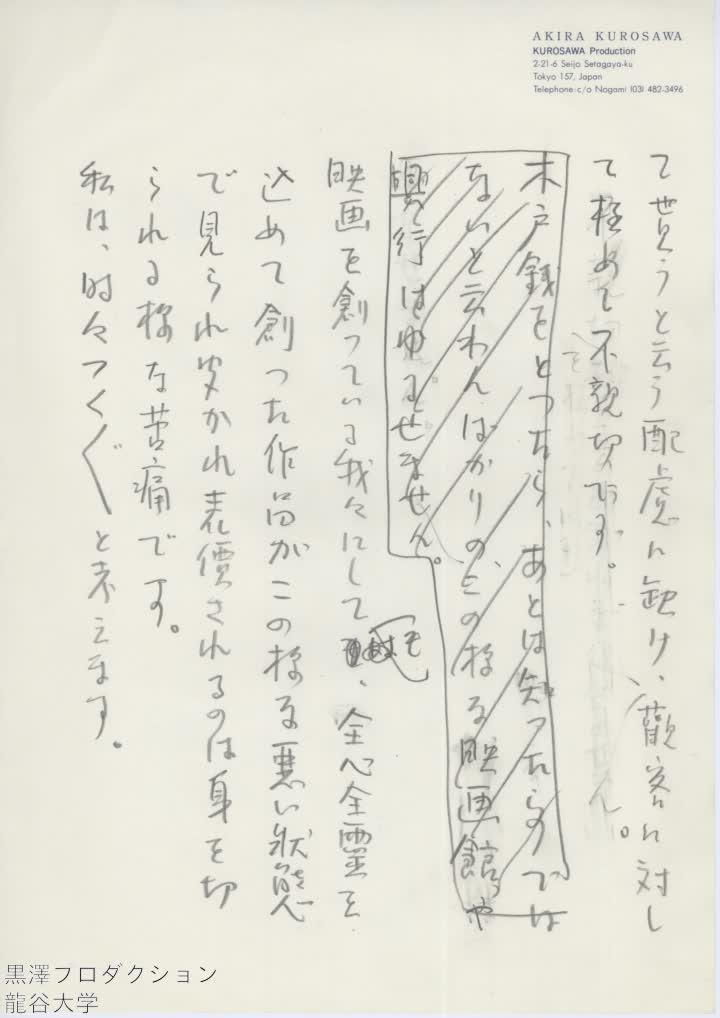 AKIRA KUROSAWA
KUROSAWA Production
2-21-6 Seijo Setagaya-ku
Tokyo 157, Japan
Telephone:c/o Nogami (03) 482-3496
て貰うと云う配慮に缺け、觀客に対し
て極めて不親切です。
木戸銭をとったら、あとは知ったらのでは
ないと云わんばかりの、この様な映画館や
興行はゆるせません。
映画を創っている我々にしても、全心全霊を
込めて創った作品がこの様な悪い状態
で見られ
かれ
価されるのは身を切
られる様な苦痛です。
私は、時々つくぐと考えます。
黒澤プロダクション
龍谷大学